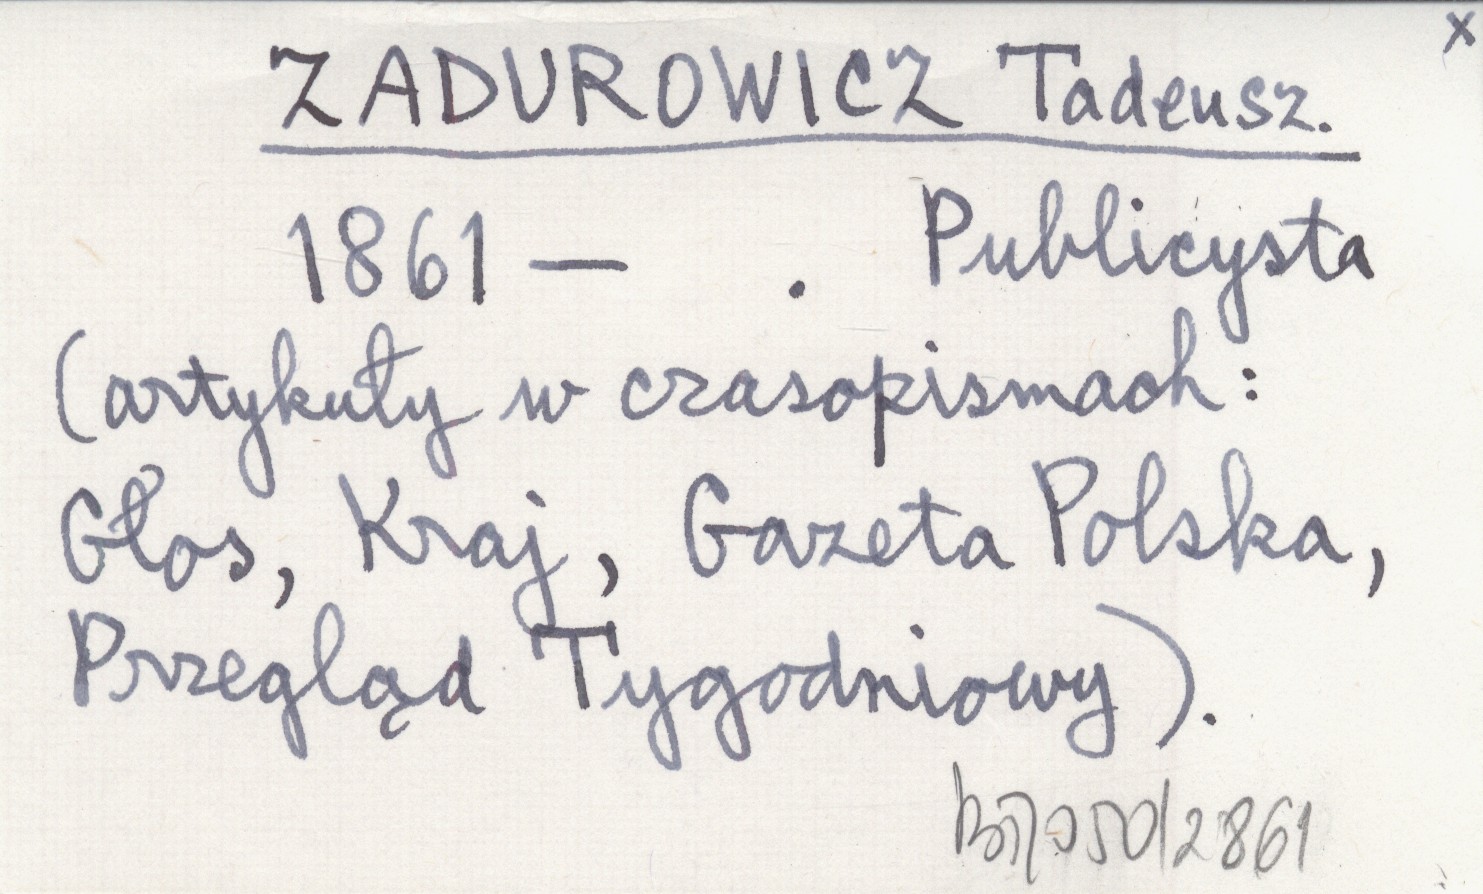 x
ZADUROWICZ Tadeusz.
1861 — . Publicysta
(artykuły w czasopismach:
Głos, Kraj, Gazeta Polska,
Przegląd Tygodniowy).